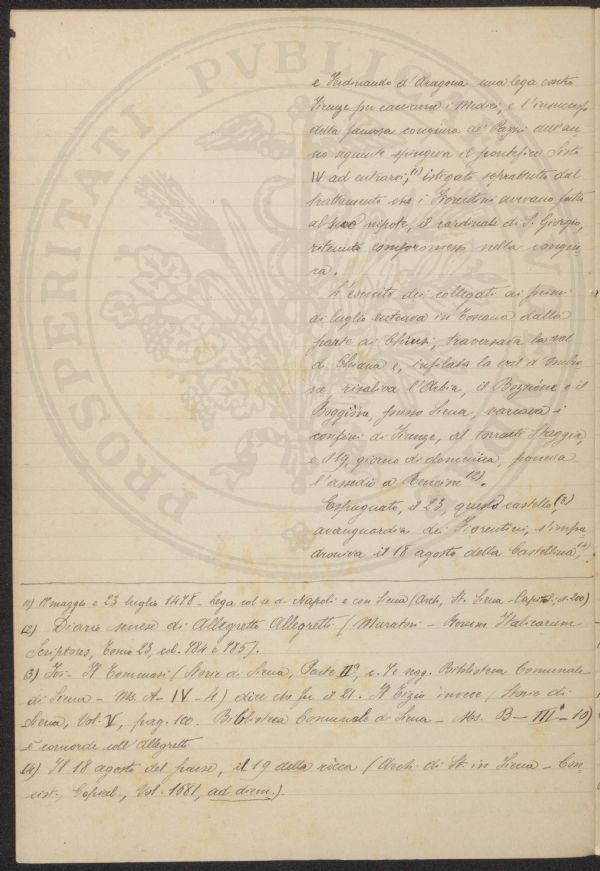 e Ferdinando d'Aragona una lega contro
Firenze per cacciarne i Medici, e l'insuccesso
della famosa congiura de' Pazzi dell'an-
no seguente spingeva il pontefice Sisto
IV ad entrarvi,(1) istigato soprattutto dal
trattamento che i Fiorentini avevano fatto
al suo nipote, il cardinale di S. Giorgio,
ritenuto compromesso nella congiu-
ra.
L'esercito dei collegati ai primi
di luglio entrava in Toscana dalla
parte di Chiusi, traversava la val
di Chiana e, infilata la val d'Ambra
risaliva l'Arbia, il Bozzone e il
presso Siena, varcava i
confini di Firenze, al torrente Staggia,
e il 19, giorno di domenica, poneva
l'assedio a Rencine (2).
Espugnato, il 23, questo castello,(3)
avanguardia dei Fiorentini, s'impa-
droniva il 18 agosto della Castellina,(4)
(1) maggio e 23 luglio 1478 - Lega col re di Napoli e con Siena (Arch. St. Siena - Capitoli, 200)
(2) Diario senese di Allegretto Allegretti (Muratori - Rerum Italicarum
Scriptores, tomo 23, col. 784 e 785).
3) Ivi - Il Tommasi (Storie di Siena, Parte II, c. 7 e segg. Biblioteca Comunale
di Siena - Ms. A - IV - 4) dice che fu il 21. Il Tizio invece (Storie di
Siena, Vol. V, pag. 100. Biblioteca Comunale di Siena - Ms. B - III - 10)
è concorde coll'Allegretti
(4) Il 18 agosto del paese, il 19 della rocca (Arch. di St. in Siena - Con-
cist., Copial., Vol. 1681, ad diem.).
PROSPERITATI PVBLICAE